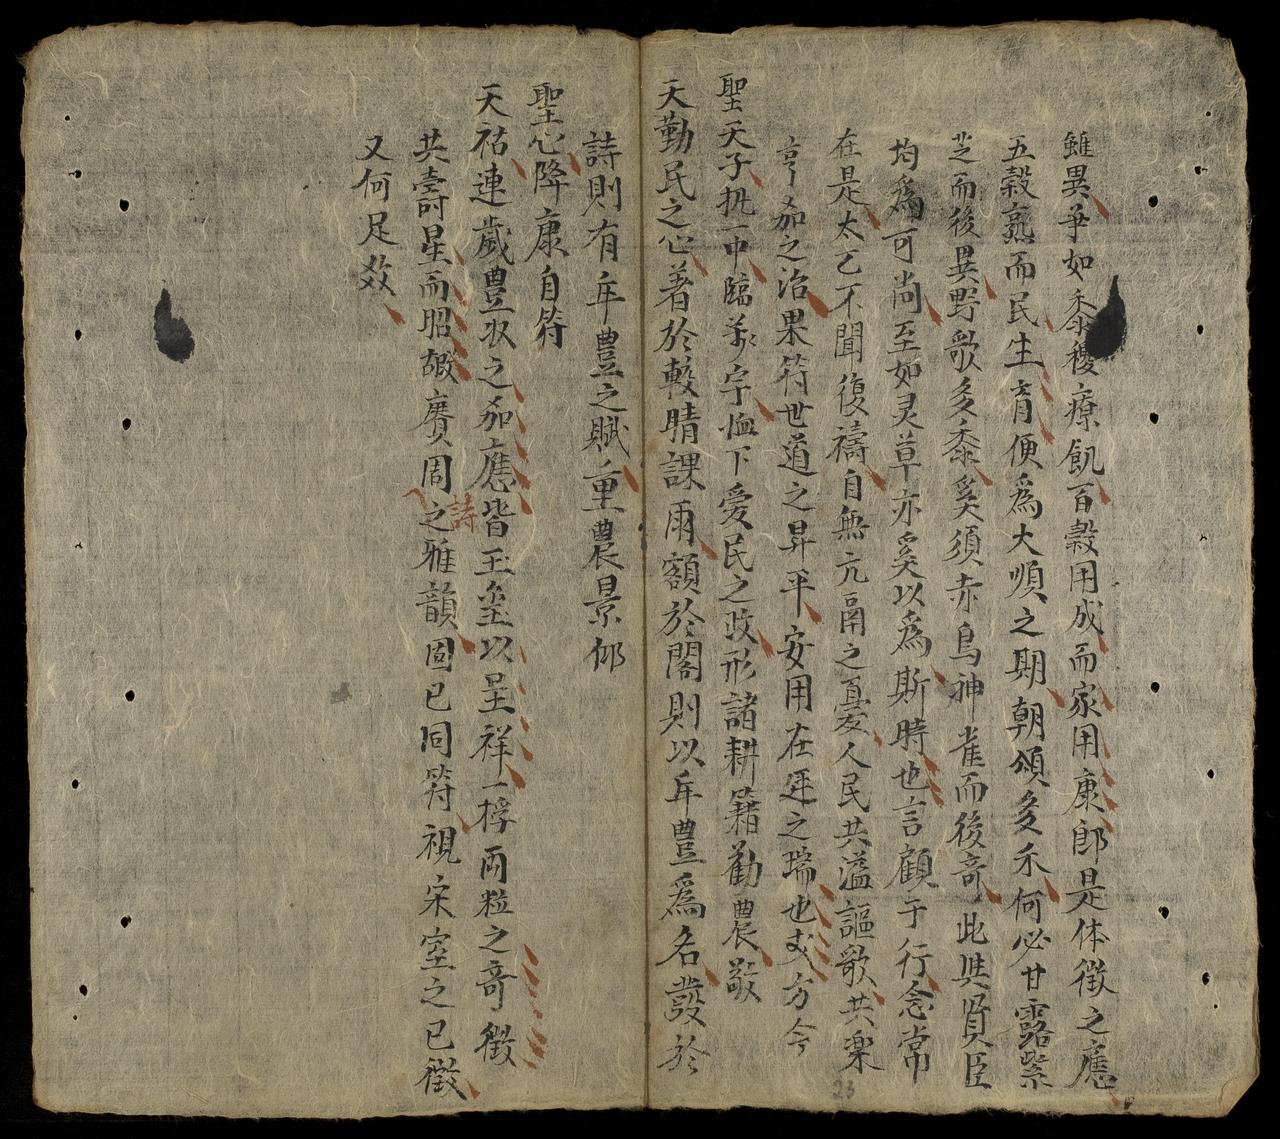 雖異爭如黍稷療飢百穀用成而家用康郎是体徵之應
五穀熟而民生育便為大順之期朝頌多禾何必甘露紫
芝而後異野歌多黍奚須赤烏神雀而後竒此與賢臣
均為可尚至如灵草亦奚以為斯時也言顧于行念常
在是太乙不聞復禱自無亢鬲之憂人民共溢謳歌共楽
亨茄之治果符世道之昇平安用在廷之瑞也方今
聖天子執中臨宇恤下爱民之政形諸耕籍勸農敬
天勤民之心著於較晴課雨額於閣則以年豊為名發於
詩則有年豊之賦重農景仰
聖心降康自符
天祐連歲豊収之茄應皆玉並以呈祥一桴兩粒之竒徵
共壽星而昭嘏赓周之雅韻固已同符視宋室之已徵
詩
又何足效
23